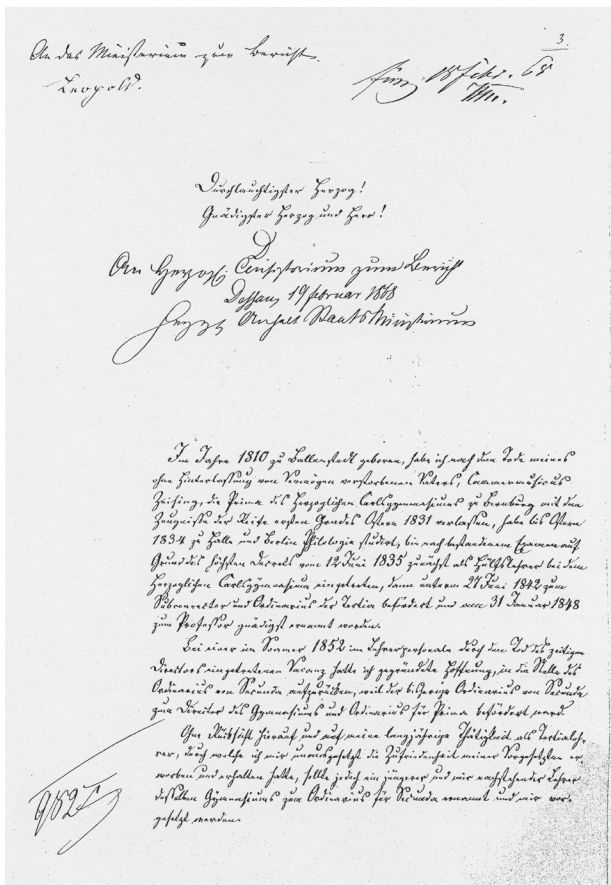 3.
An das Ministerium zum Bericht.
Leopold.
18 Febr. 68
Durchlauchtigster Herzog!
Gnädigster Herzog und Herr!
An Herzogl. Consistorium zum Bericht
Dessau, 19 Februar 1868
Herzgl. Anhalt Staats Ministerium
Im Jahre 1810 zu Ballenstedt geboren, habe ich nach dem Tode meines
ohne Hinterlassung von Vermögen verstorbenen Vaters, Cammermusicus
Zeising, die Prima des Herzoglichen Carlsgymnasiums zu Bernburg mit dem
Zeugnisse der Reife ersten Grades Ostern 1831 verlassen, habe bis Ostern
1834 zu Halle und Berlin Philologie studirt, bin nach bestandenem Examen auf
Grund des höchsten Decrets vom 12 Juni 1835 zunächst als Hülfslehrer bei dem
Herzoglichen Carlsgymnasium eingetreten, dann unterm 27 Juni 1842 zum
Subconrector und Ordinarius der Tertia befördert und am 31 Januar 1848
zum Professor gnädigst ernannt worden.
Bei einer im Sommer 1852 im Lehrerpersonale durch den Tod des zeitigen
Directors eingetretenen Vacanz hatte ich gegründete Hoffnung, in die Stelle des
Ordinarius von Secunda aufzurücken, weil der bisherige Ordinarius von Secunda
zum Director des Gymnasiums und Ordinarius für Prima befördert ward.
Ohne Rücksicht hierauf und auf meine langjährige Thätigkeit als Tertialeh-
rer, durch welche ich mir unausgesetzt die Zufriedenheit meiner Vorgesetzten er
worben und erhalten hatte, sollte jedoch ein jüngerer und mir nachstehender Lehrer
desselben Gymnasiums zum Ordinarius für Secunda ernannt und mir vor-
gesetzt werden.